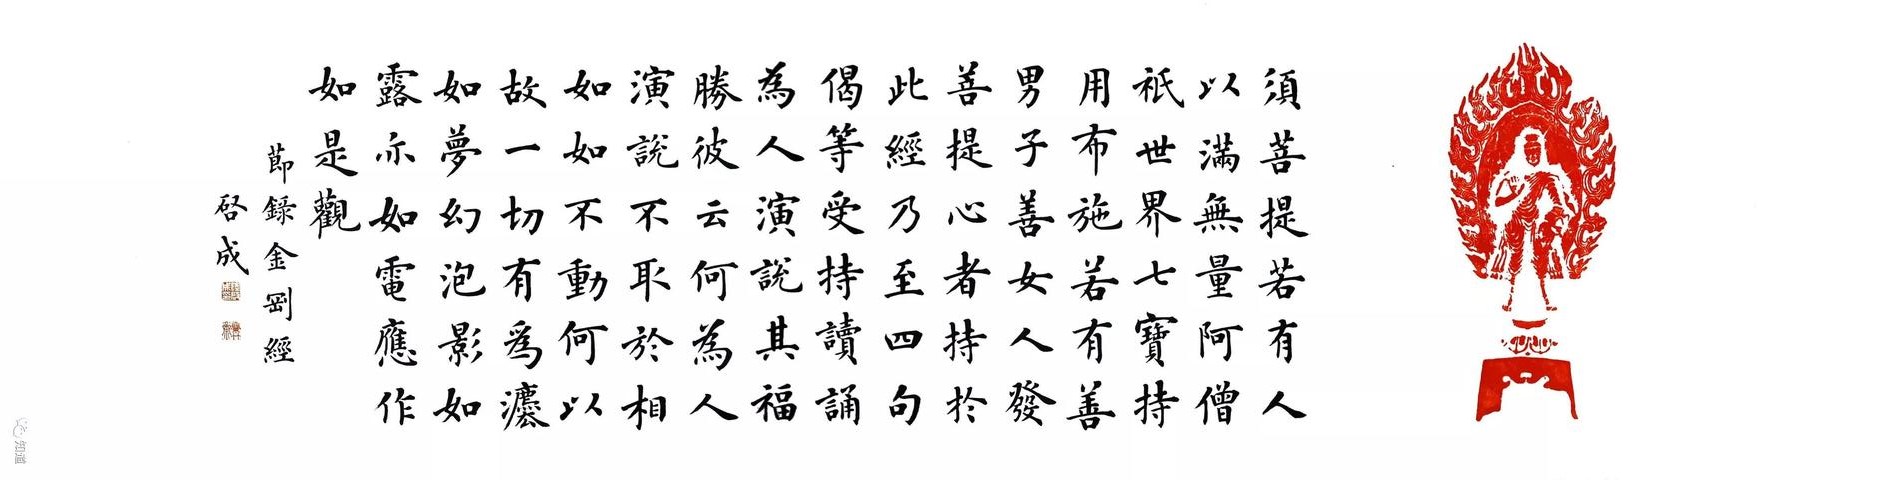 須菩提若有人
以滿無量阿僧
祇世界七寶持
用布施若有善
男子善女人發
菩提心者持於
此經乃至四句
偈等受持讀誦
為人演說其福
勝彼云何為人
演說不取於相
如如不動何以
故一切有為灋
如夢幻泡影如
露亦如電應作
如是觀
節錄金剛經
啓成